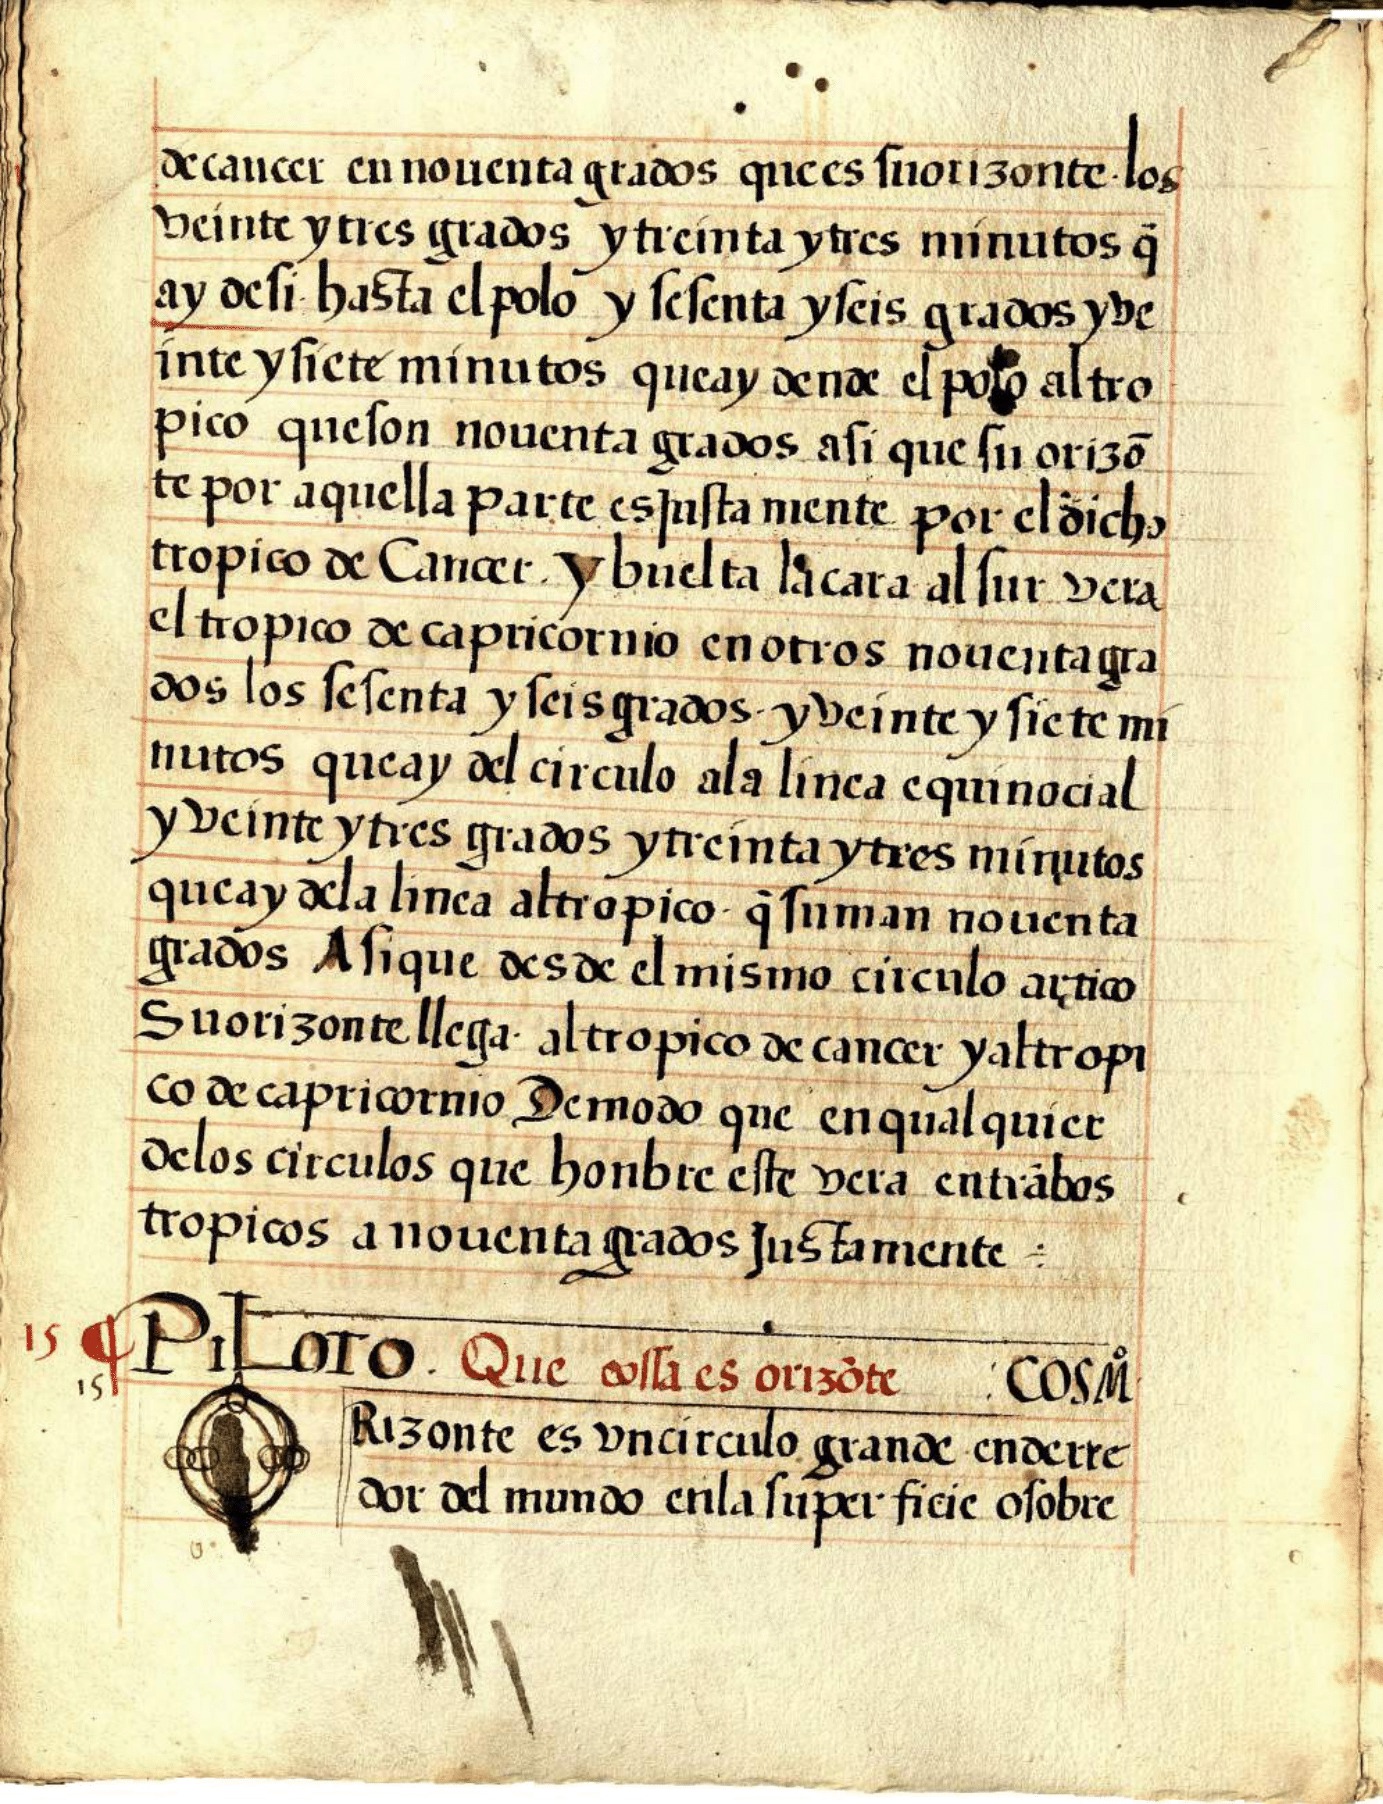 de cancer en nouenta grados que es su orizonte. los
veinte y tres grados y treinta y tres minutos q̃
ay de si. hasta el polo y sesenta y seis grados y ve
inte y siete minutos que ay dende el polo al tro
pico que son nouenta grados asi que su orizõ
te por aquella parte es Justa mente por el dicho
tropico de Cancer. y buelta la cara al sur vera
el tropico de capricornio en otros nouenta gra
dos los sesenta y seis grados. y veinte y siete mi
nutos que ay del circulo a la linea equinocial
y veinte y tres grados y treinta y tres minutos
que ay de la linea al tropico. q̃ suman nouenta
grados Asi que desde el mismo circulo artico
Su orizonte llega. al tropico de cancer y al tropi
co de capricornio De modo que en qual quier
de los circulos que honbre este vera entrãbos
tropicos a nouenta grados Justa mente
15 ¶ PiLoto. Que cossa es orizõte : COSMº
15
O Rizonte es vn circulo grande en derre
dor del mundo en la super ficie o sobre